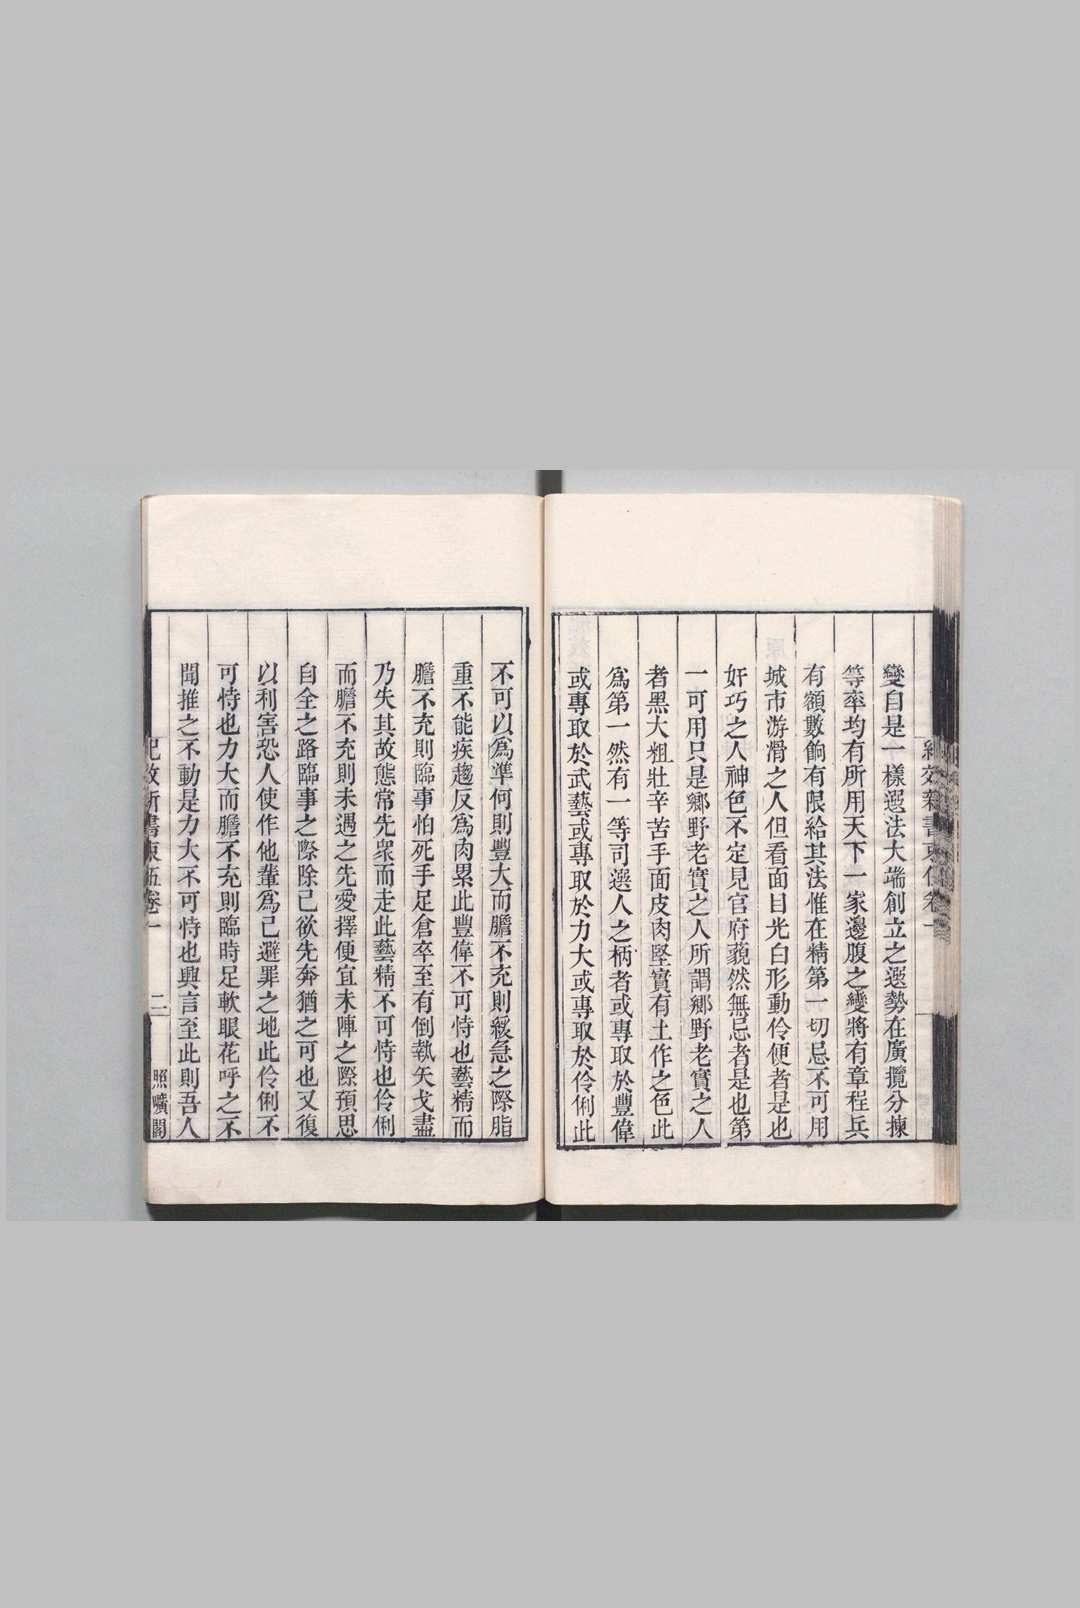 變自是一樣選法大端創立之選勢在廣攬分揀
等率均有所用天下一家邊腹之變將有章程兵
有額數餉有限給其法惟在精第一切忌不可用
城市游滑之人但看面目光白形動伶便者是也
奸巧之人神色不定見官府藐然無忌者是也第
一可用只是鄉野老實之人所謂鄉野老實之人
者黑大粗壯辛苦手面皮肉堅實有土作之色此
爲第一然有一等司選人之柄者或專取於豐偉
或專取於武藝或專取於力大或專取於伶俐此
不可以爲準何則豐大而膽不充則緩急之際脂
重不能疾趨反爲肉累此豐偉不可恃也藝精而
膽不充則臨事怕死手足倉卒至有倒執矢戈盡
乃失其故態常先衆而走此藝精不可恃也伶俐
而膽不充則未遇之先愛擇便宜未陣之際預思
自全之路臨事之際除己欲先奔猶之可也又復
以利害恐人使作他輩爲己避罪之地此伶俐不
可恃也力大而膽不充則臨時足軟眼花呼之不
聞推之不動是力大不可恃也興言至此則吾人
紀效新書束伍卷一
二
照曠閣